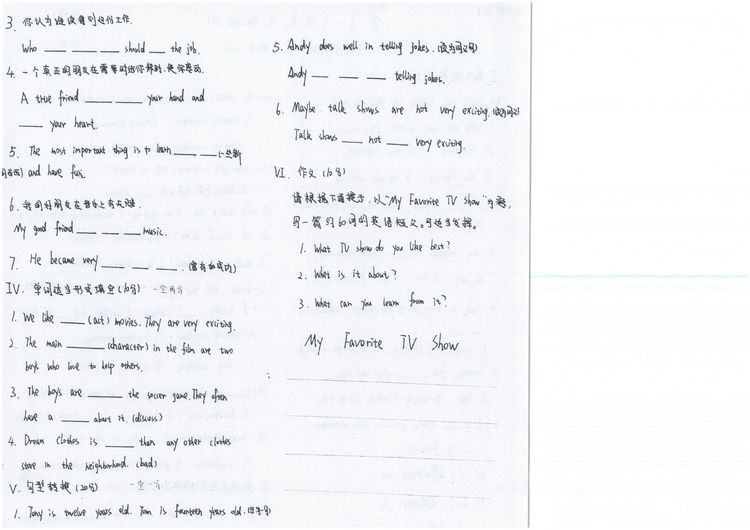 3. 你认为谁该得到这份工作.
Who ___ ___ ___ should ___ the job.
4. 一个真正的朋友在需要时给你帮助,使你感动.
A true friend ___ ___ your hand and
___ your heart.
5. The most important thing is to learn ___ ___ (一些新
的东西) and have fun.
6. 我的好朋友在音乐上有天赋.
My good friend ___ ___ ___ music.
7. He became very ___ ___ ___. (富有和成功)
IV. 单词适当形式填空(10分) 一空两分
1. We like ___ (act) movies. They are very exciting.
2. The main ___ (character) in the film are two
boys who love to help others.
3. The boys are ___ the soccer game. They often
have a ___ about it. (discuss)
4. Dream Clothes is ___ than any other clothes
store in the neighborhood. (bad)
V. 句型转换 (20分) 一空一分
1. Tony is twelve years old. Tom is fourteen years old.
5. Andy does well in telling jokes. (改为同义句)
Andy ___ ___ ___ telling jokes.
6. Maybe talk shows are not very exciting. (改为同义)
Talk shows ___ not ___ very exciting.
VI. 作文 (10分)
请根据下面提示, 以"My Favorite TV show"为题,
写一篇约60词的英语短文。可适当发挥。
1. What TV show do you like best?
2. What is it about?
3. What can you learn from it?
My Favorite TV Show